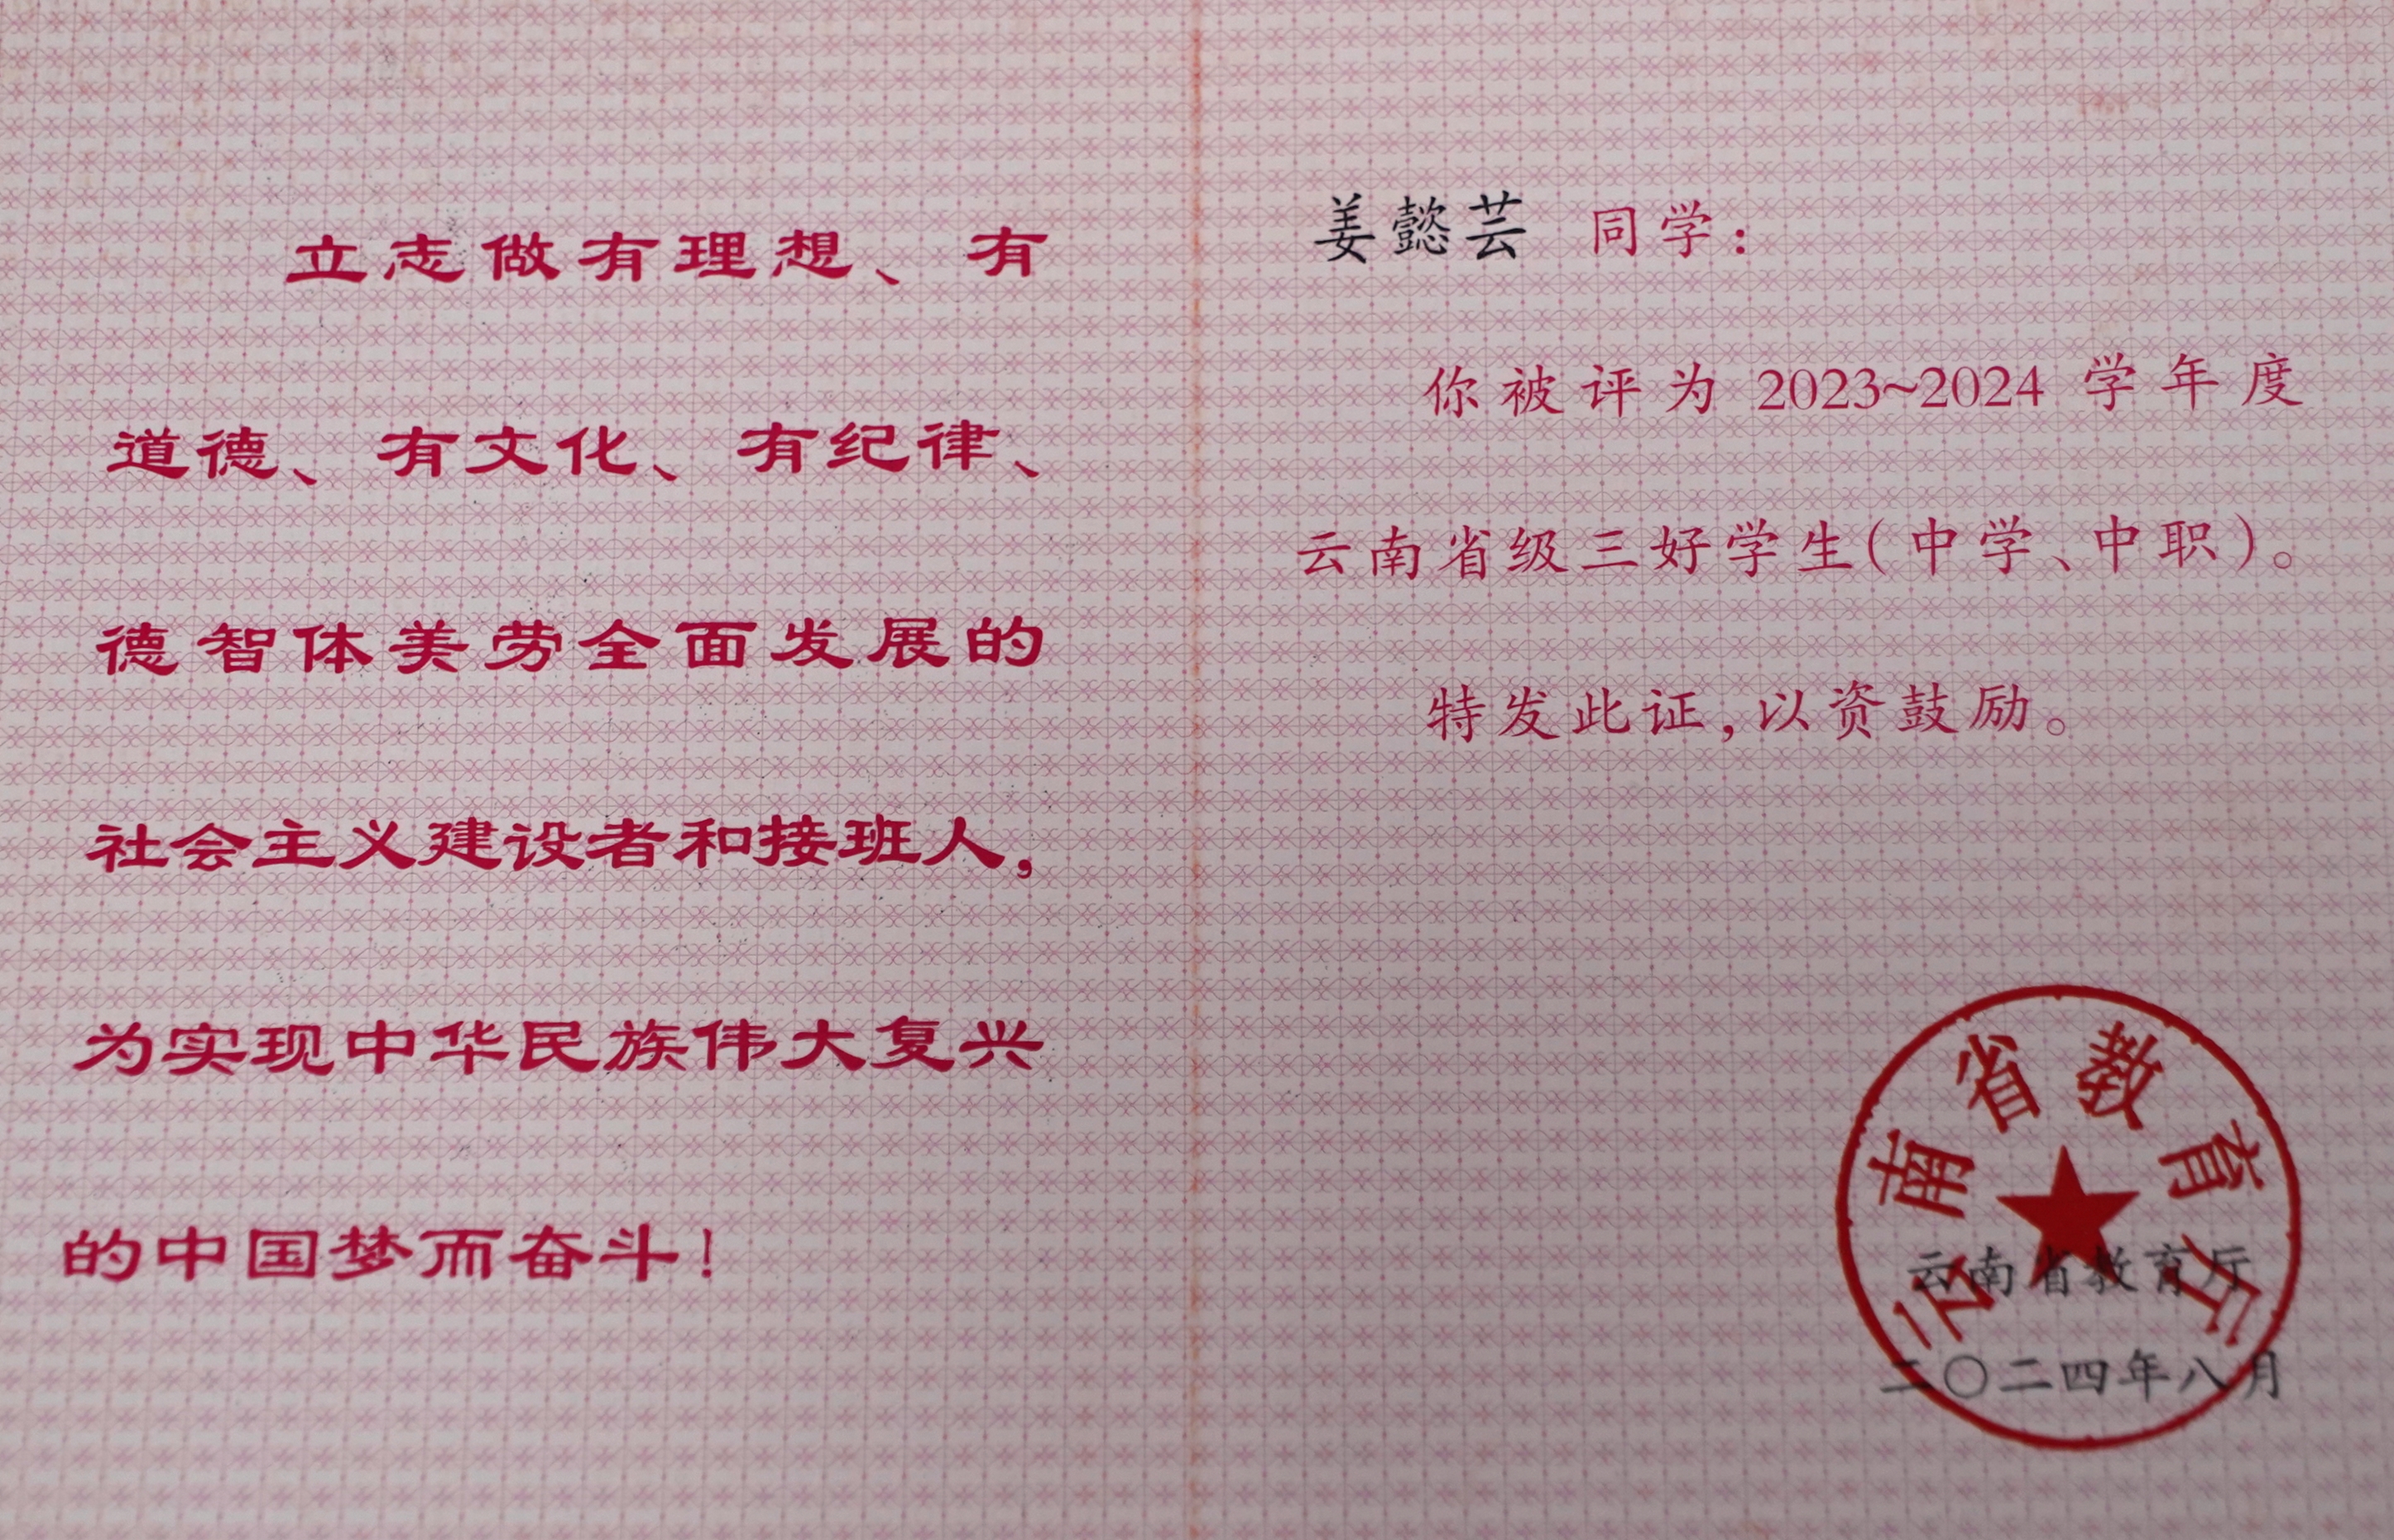 立志做有理想、有
道德、有文化、有纪律、
德智体美劳全面发展的
社会主义建设者和接班人，
为实现中华民族伟大复兴
的中国梦而奋斗！
姜懿芸 同学：
你被评为 2023~2024 学年度
云南省级三好学生（中学、中职）。
特发此证，以资鼓励。
云南省教育厅
云南省教育厅
二〇二四年八月